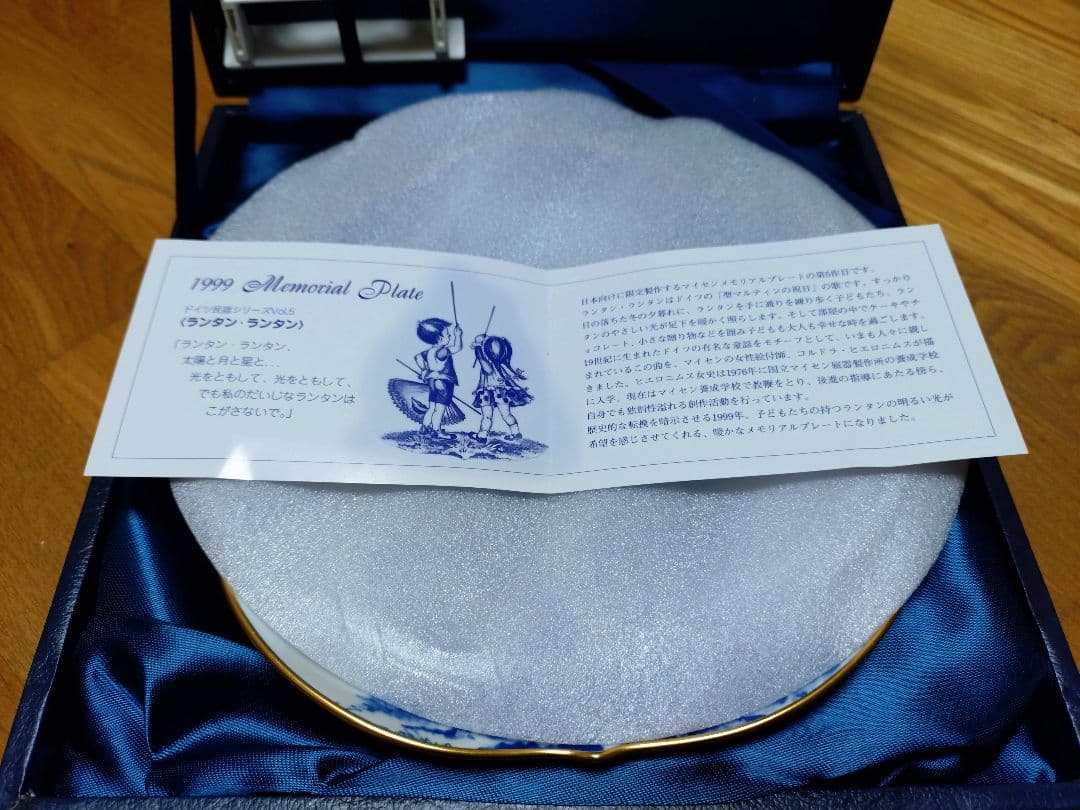 1999 Memorial Plate
ドイツ民謡シリーズVol.5
《ランタン・ランタン》
「ランタン・ランタン、
太陽と月と星と…
光をともして、光をともして、
でも私のだいじなランタンは
こがさないで。」
日本向けに限定製作するマイセンメモリアルプレートの第5作目です。
ランタン・ランタンはドイツの「聖マルティンの祝日」の歌です。すっかり
日の落ちた冬の夕暮れに、ランタンを手に通りを練り歩く子どもたち、ラン
タンのやさしい光が足下を暖かく照らします。そして部屋の中でケーキやチ
ョコレート、小さな贈り物などを囲み子どもも大人も幸せな時を過ごします。
19世紀に生まれたドイツの有名な童謡をモチーフとして、いまも人々に親し
まれているこの曲を、マイセンの女性絵付師、コルドラ・ヒエロニムスが描
きました。ヒエロニムス女史は1976年に国立マイセン磁器製作所の養成学校
に入学。現在はマイセン養成学校で教鞭をとり、後進の指導にあたる傍ら、
自身でも独創性溢れる創作活動を行っています。
歴史的な転換を暗示させる1999年、子どもたちの持つランタンの明るい光が
希望を感じさせてくれる、暖かなメモリアルプレートになりました。